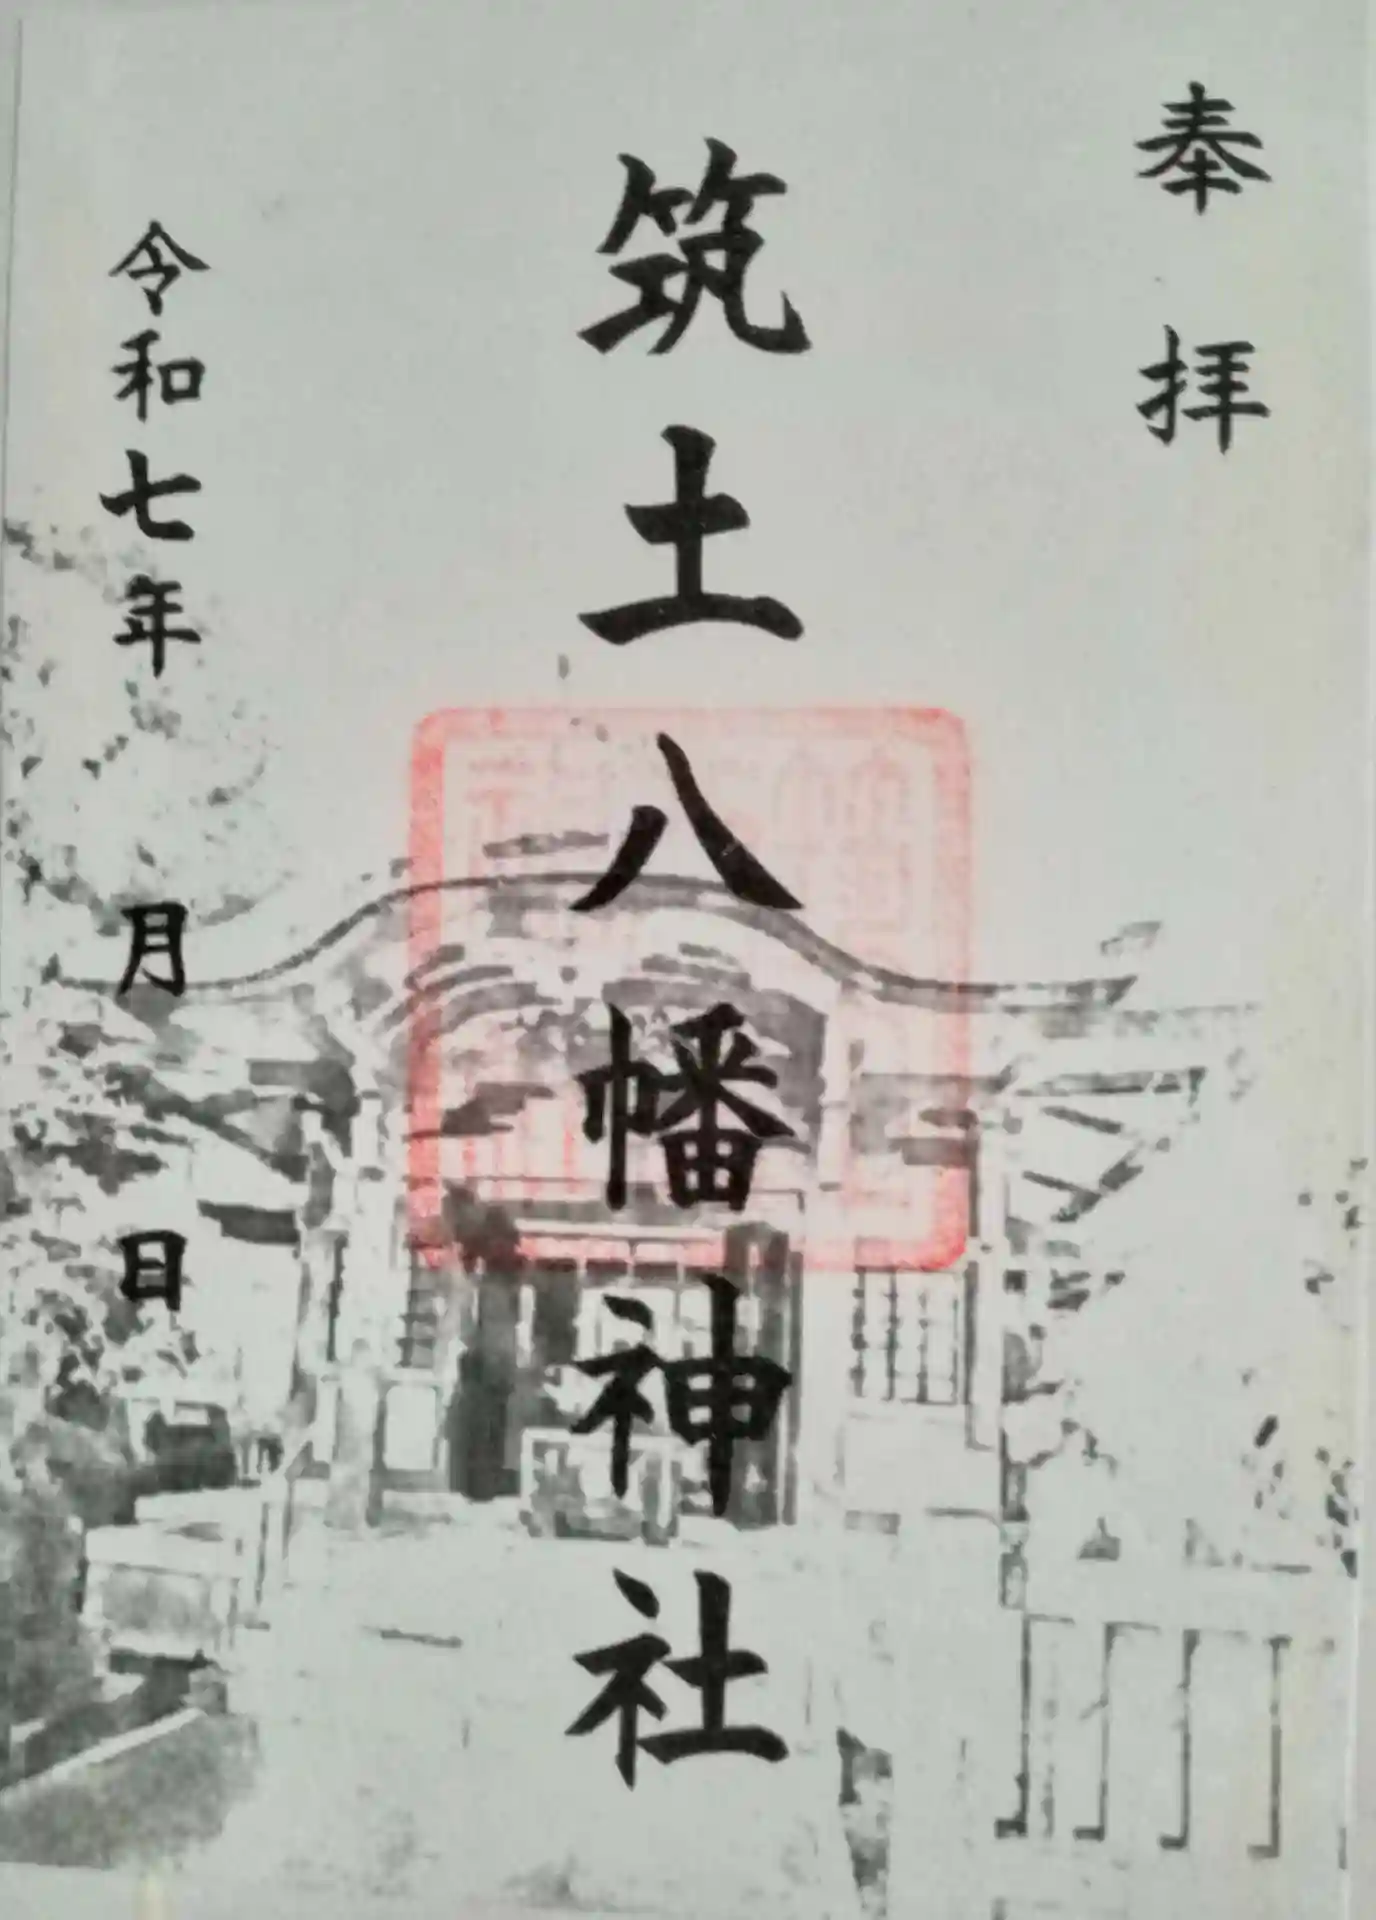 奉拝
筑土八幡神社
令和七年　月　日